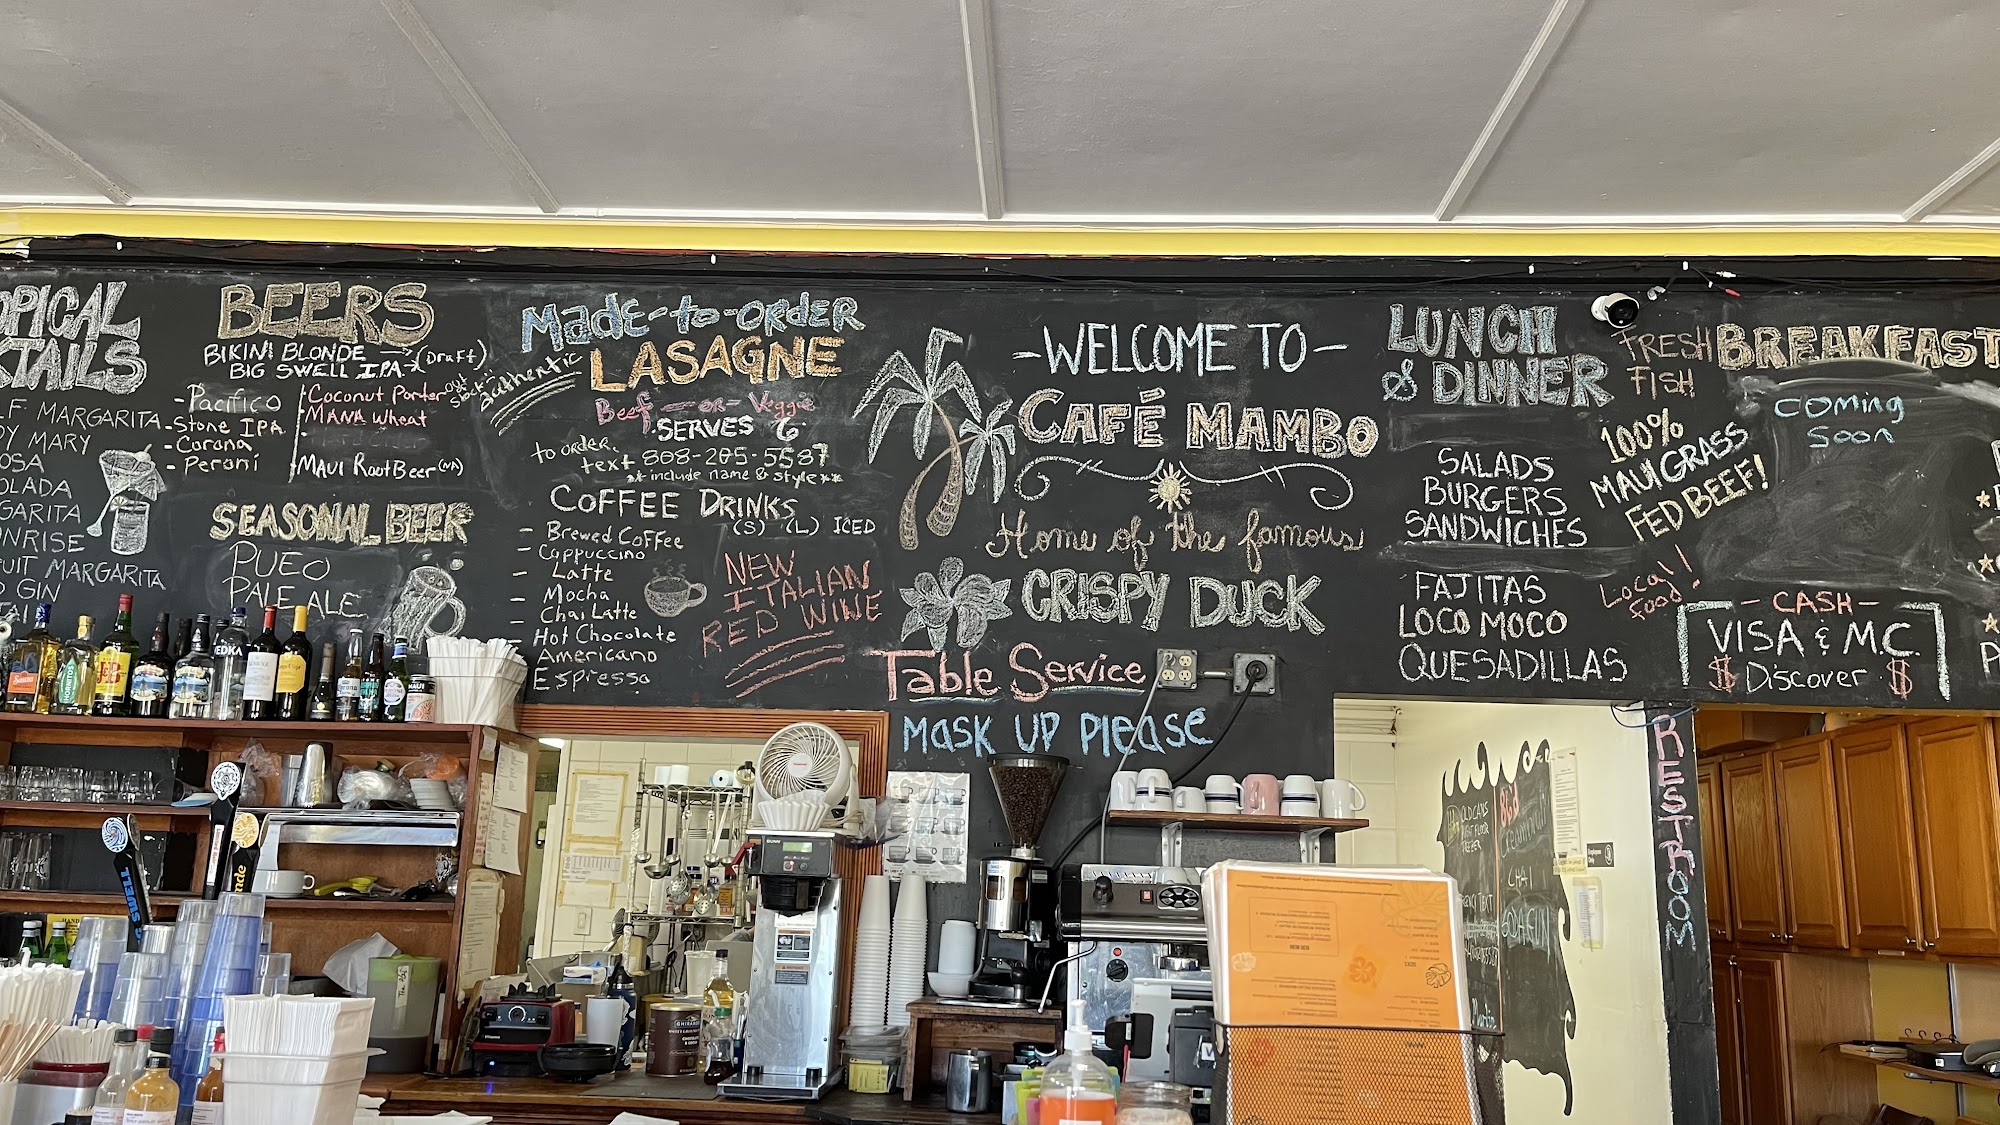 OPICAL
KTAILS
L.F. MARGARITA
DY MARY
OSA
OLADA
GARITA
NRISE
UIT MARGARITA
GIN
TAI
BEERS
BIKINI BLONDE → (Draft)
BIG SWELL IPA →
- Pacifico
- Stone IPA
- Corona
- Peroni
Coconut Porter out of stock!!
MANA Wheat
MAUI Root Beer (NA)
SEASONAL BEER
PUEO
PALE ALE
Made-to-ORDER
authentic
LASAGNE
Beef -or- Veggie
SERVES 6
to order,
text 808-205-5587
** include name & style **
COFFEE DRINKS
(S) (L) ICED
- Brewed Coffee
- Cappuccino
- Latte
- Mocha
- Chai Latte
- Hot Chocolate
Americano
Espresso
NEW
ITALIAN
RED WINE
-WELCOME TO-
CAFÉ MAMBO
Home of the famous
CRISPY DUCK
Table Service
MASK UP PLEASE
LUNCH
& DINNER
SALADS
BURGERS
SANDWICHES
FAJITAS
LOCO MOCO
QUESADILLAS
FRESH
FISH
100%
MAUI GRASS
FED BEEF!
Local!
Food
BREAKFAST
COMING
SOON
- CASH -
VISA & M.C.
$ Discover $
RESTROOM
CHAI
SWELL
GHIRARDELLI
BUNN